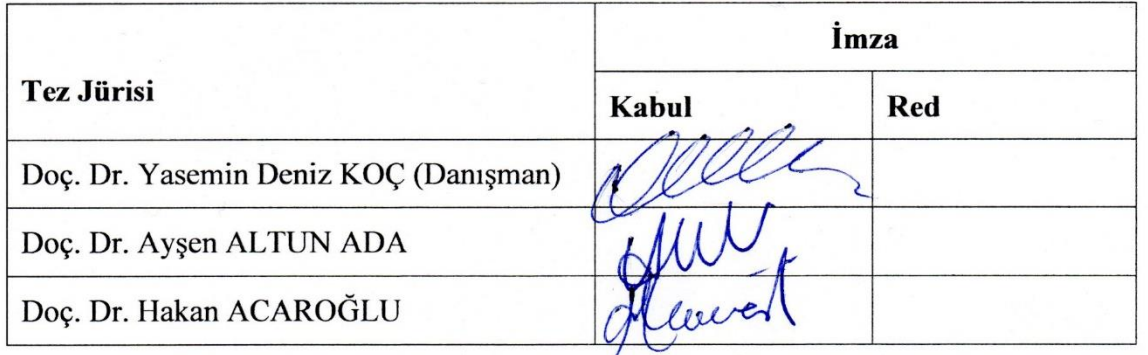 İmza
Tez Jürisi
Kabul Red
Doç. Dr. Yasemin Deniz KOÇ (Danışman)
Doç. Dr. Ayşen ALTUN ADA
Doç. Dr. Hakan ACAROĞLU